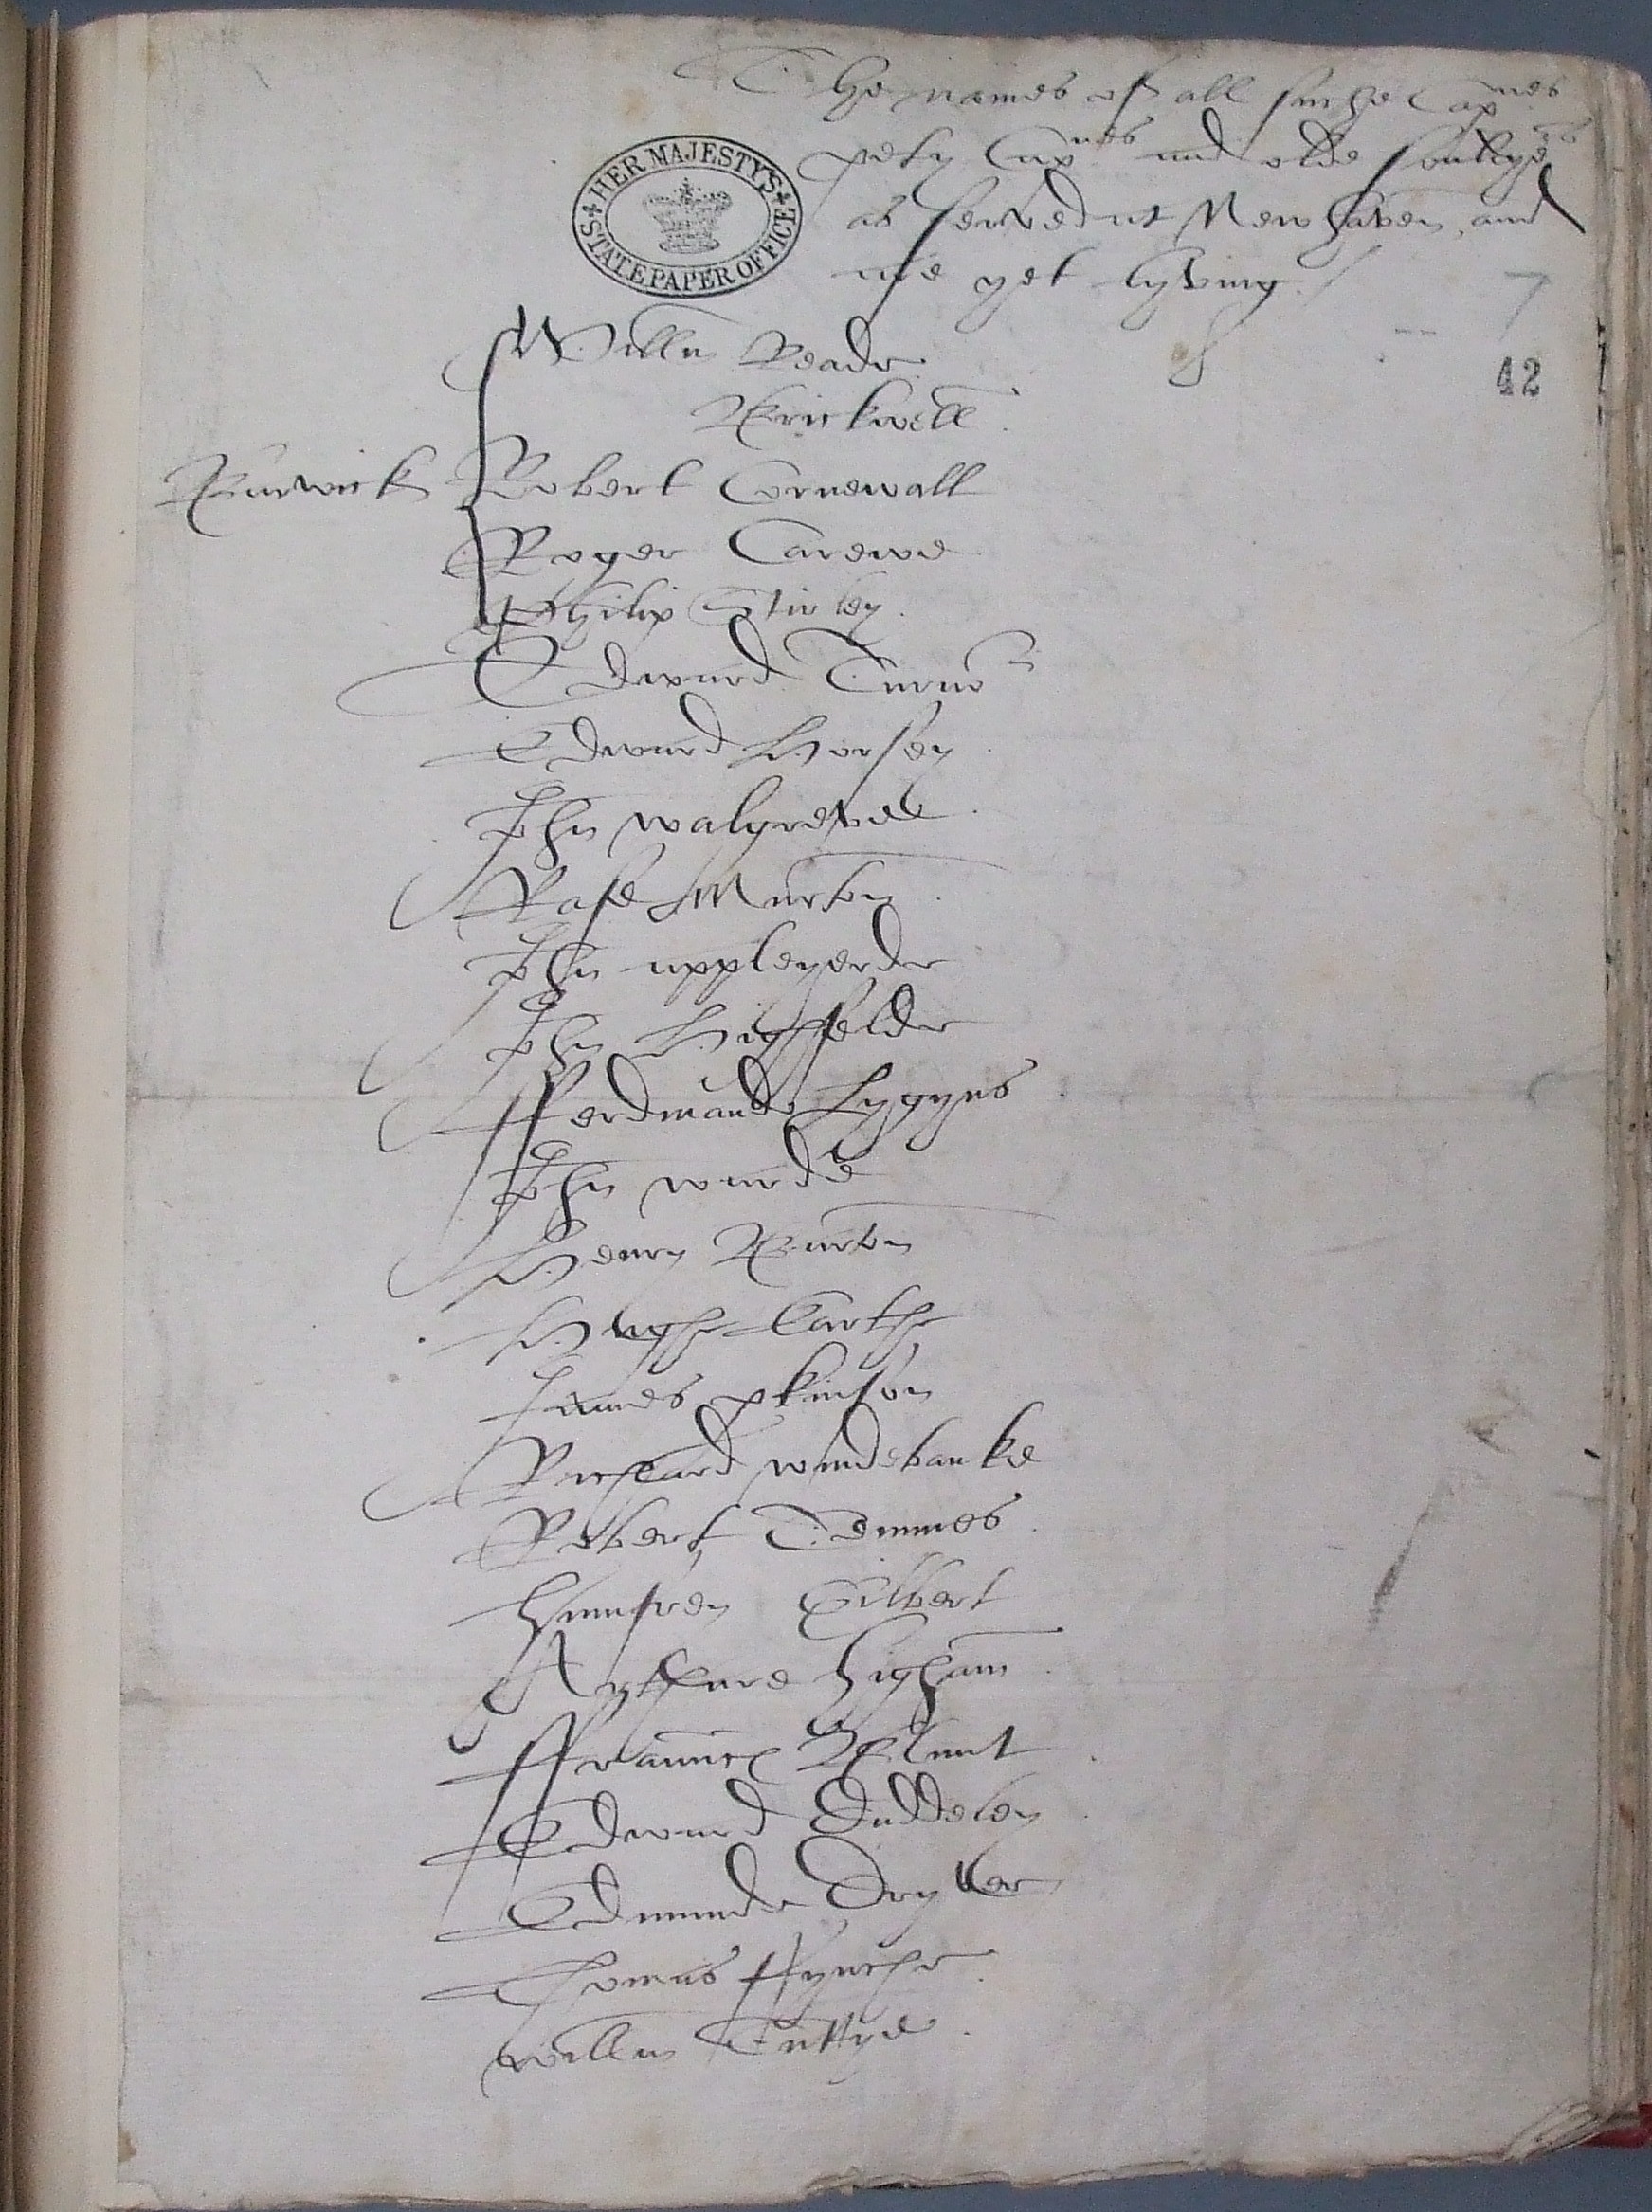 The names of all suche Capnes
pety Capnes and olde souldyers
as served at Newhaven, and
are yet lyving.
HER MAJESTY'S
STATE PAPER OFFICE
42
Willm Reade
Brickwell
Barwick
Robert Cornewall
Roger Carewe
Philip Stirley
Edward Turnor
Edward Horsey
John Walgreve
Rafe Murton
John appleyerde
John Highfelde
Fferdinando Lygyns
John warde
Henry Burton
Hughe Carthe
James pkinson
Richard windebanke
Robert Temmes
Humfrey Gilbert
Arthure higham
Ffraunces Blunt
Edward Duddeley
Edmunde Dryver
Thomas Ffynche
Willm Tuttye